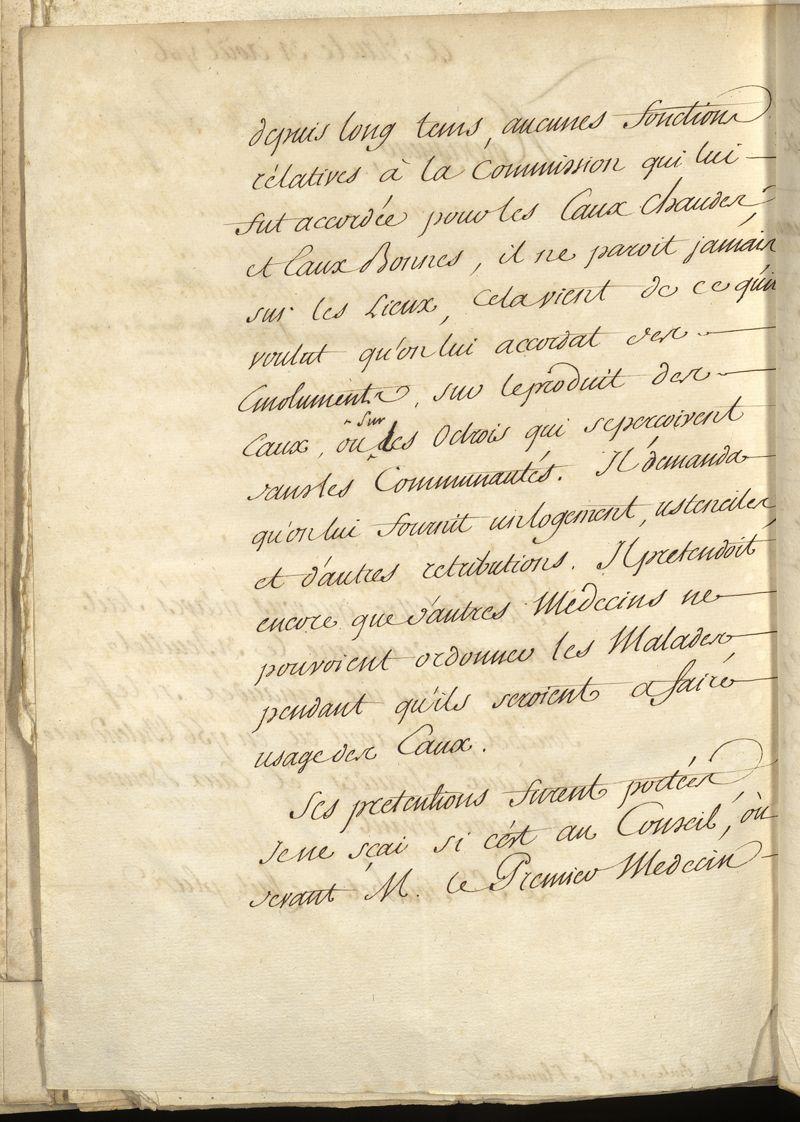 depuis long tems, aucunes fonctions
rélatives à la Commission qui lui
fut accordée pour les Eaux chaudes
et Eaux Bonnes, il ne paroit jamais
sur les Lieux, cela vient de ce qu'il
voulut qu'on lui accordat des
Emoluments, sur le produit des
Eaux, ou sur les Octrois qui se perçoivent
dans les Communautés. Il démanda
qu'on lui fournit un logement, ustenciles,
et d'autres retributions. Il pretendoit
encore que d'autres Médecins ne
pouvoient ordonner les Malades
pendant qu'ils seroient a faire
usage des Eaux.
Ses pretentions furent portées
Je ne sçai si c'ést au Conseil, où
devant M. le Premier Medecin